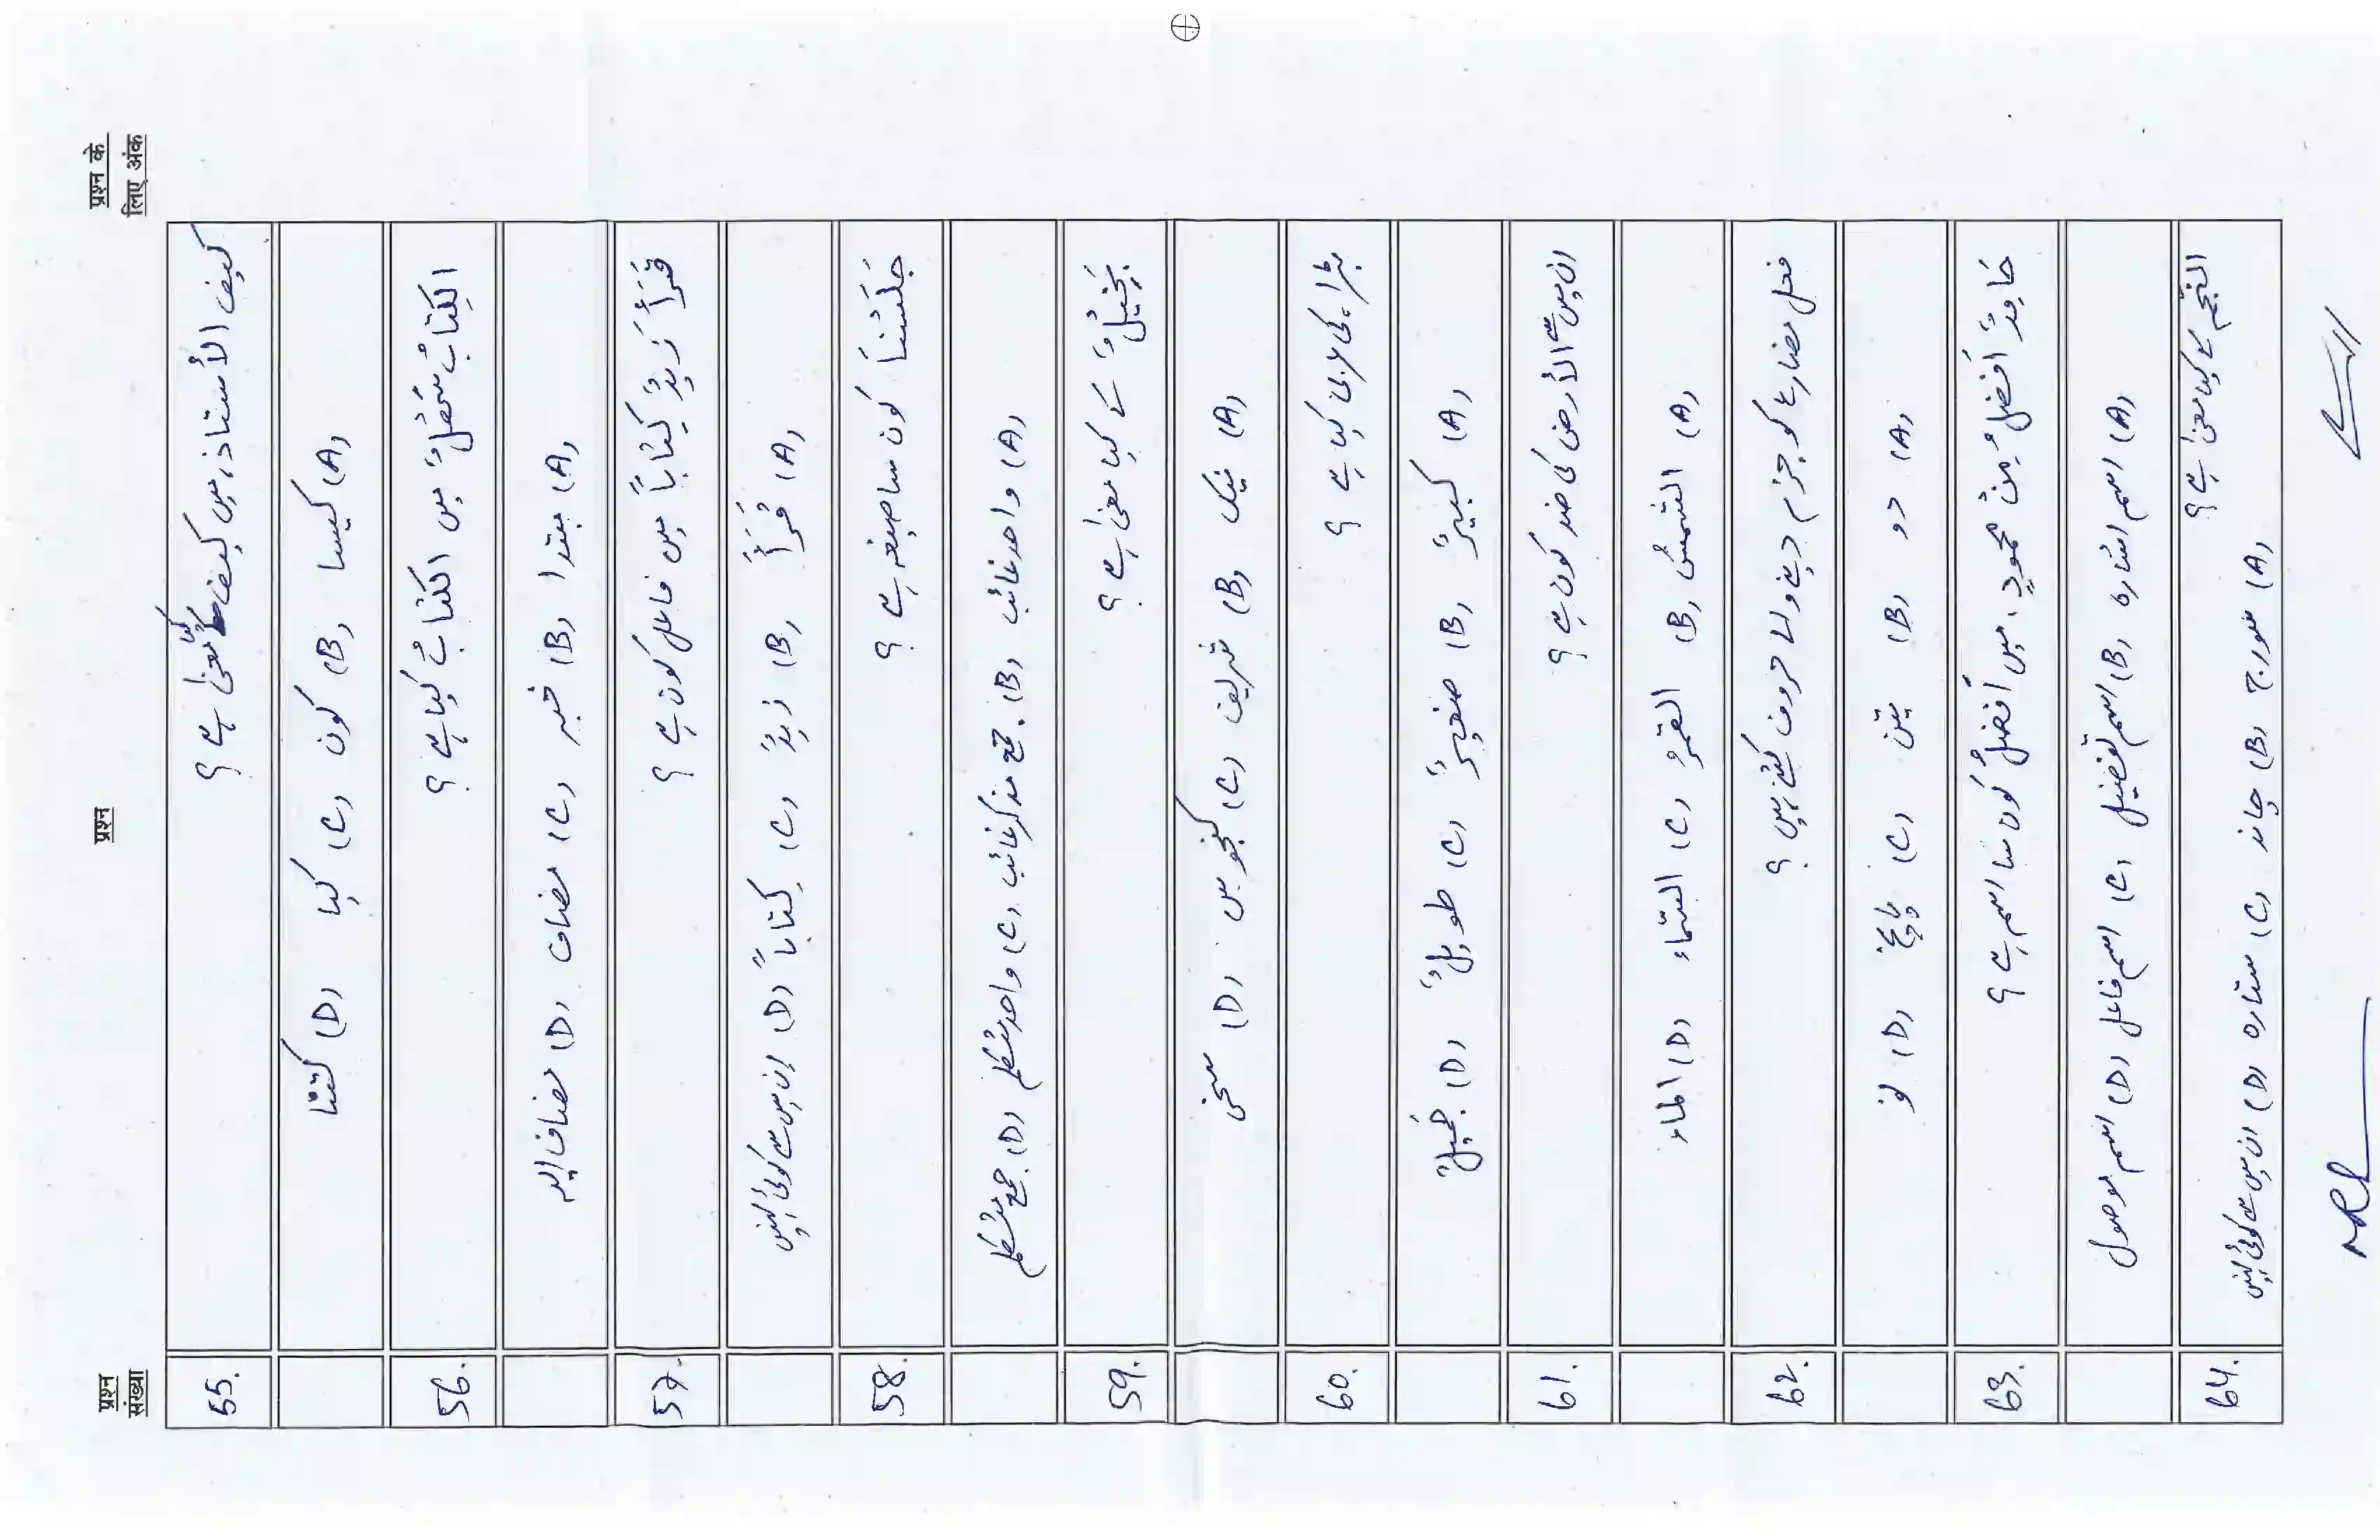 प्रश्न संख्या
प्रश्न
प्रश्न के लिए अंक
55.
کیف الأستاذ، میں کیف کیا معنیٰ ہے ؟
(A) کیسا (B) کون (C) کیا (D) کتنا
56.
الکِتَابُ سَھْلٌ میں الکتابُ کیا ہے ؟
(A) مبتدا (B) خبر (C) مضاف (D) مضاف الیہ
57.
قَرَأَ زَیدٌ کِتَاباً میں فاعل کون ہے ؟
(A) قَرَأَ (B) زیدٌ (C) کِتاباً (D) ان میں سے کوئی نہیں
58.
جَلَسْنَا کون سا صیغہ ہے ؟
(A) واحد غائب (B) جمع مذکر غائب (C) واحد متکلم (D) جمع متکلم
59.
بَخِیْلٌ کے کیا معنیٰ ہے ؟
(A) نیک (B) شریف (C) کنجوس (D) سخی
60.
بڑا، کی عربی کیا ہے ؟
(A) کبیرٌ (B) صغیرٌ (C) طویلٌ (D) جَمِیلٌ
61.
ان میں سے الأرض کی ضد کون ہے ؟
(A) الشمسُ (B) القمرُ (C) السّماء (D) الماء
62.
فعل مضارع کو جزم دینے والے حروف کتنے ہیں ؟
(A) دو (B) تین (C) پانچ (D) نو
63.
حَامِدٌ أَفضلُ مِنْ محمودٍ، میں أَفضلُ کون سا اسم ہے ؟
(A) اسم اشارہ (B) اسم تفضیل (C) اسم فاعل (D) اسم موصول
64.
النّجْم کے کیا معنیٰ ہے ؟
(A) سورج (B) چاند (C) ستارہ (D) ان میں سے کوئی نہیں